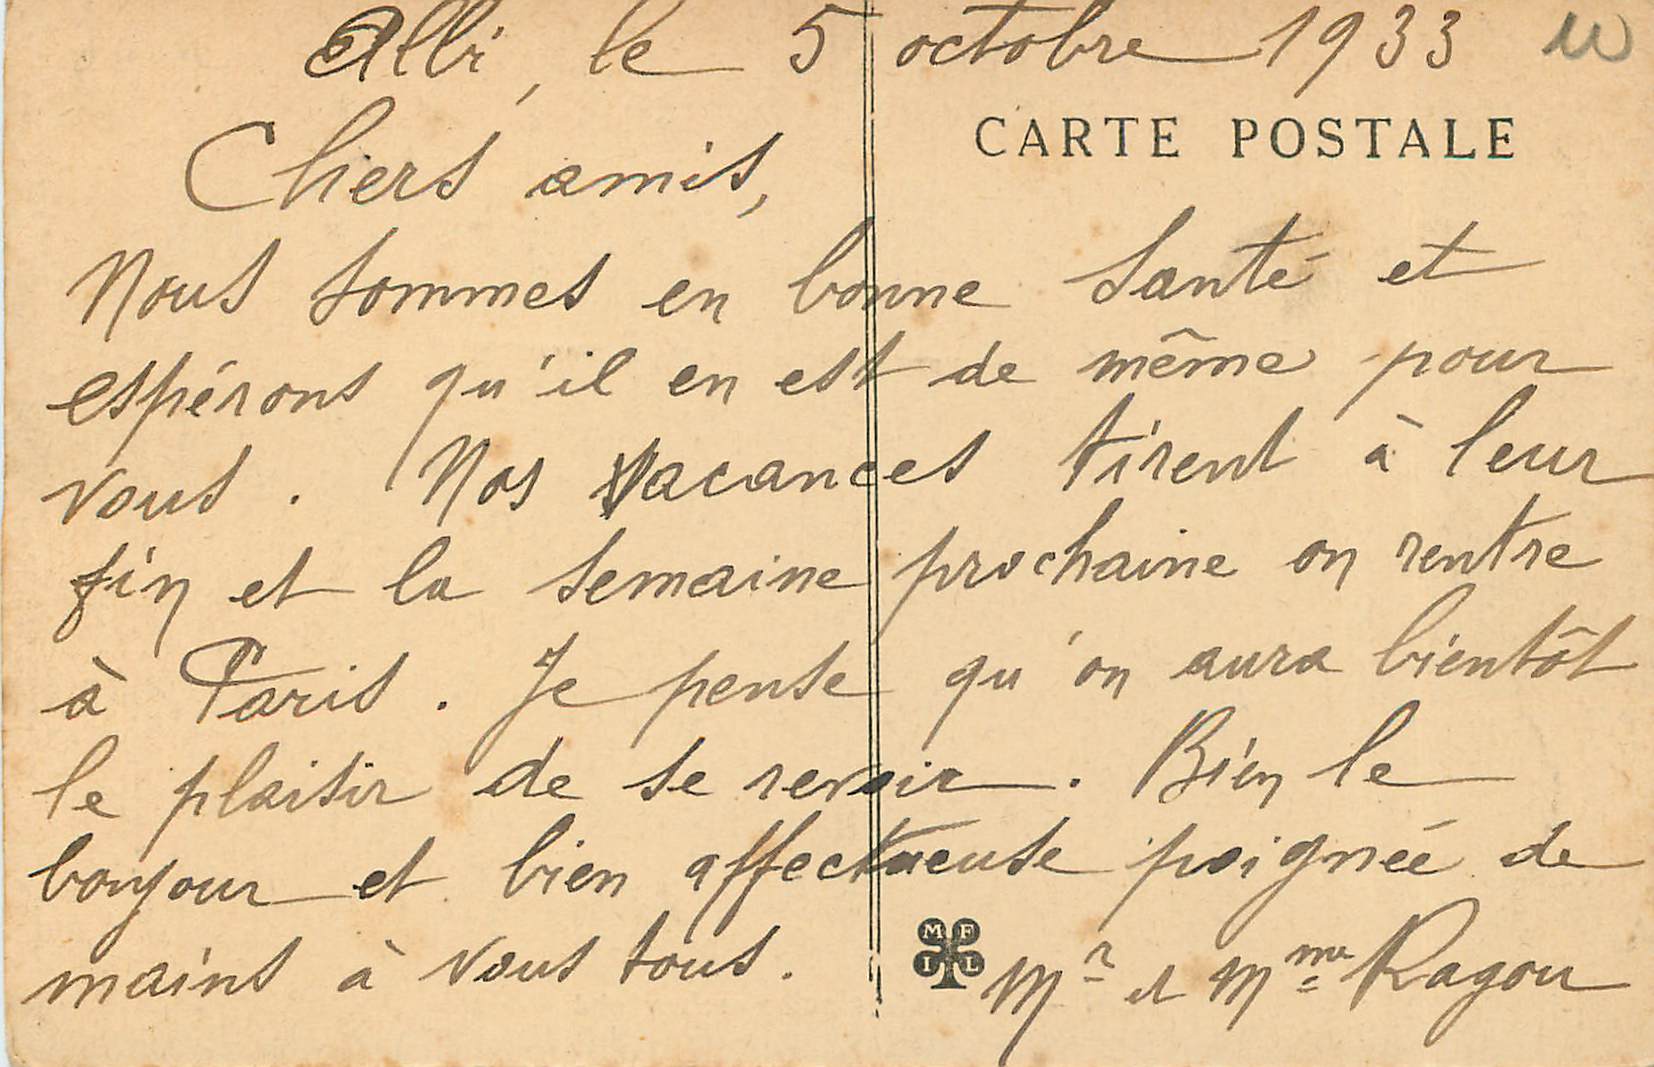 Albi, le 5 octobre 1933
CARTE POSTALE
Chers amis,
Nous sommes en bonne santé et
espérons qu'il en est de même pour
vous. Nos vacances tirent à leur
fin et la semaine prochaine on rentre
à Paris. Je pense qu'on aura bientôt
le plaisir de se revoir. Bien le
bonjour et bien affectueuse poignée de
mains à vous tous.
M F
I L
Mr et Mme Ragou